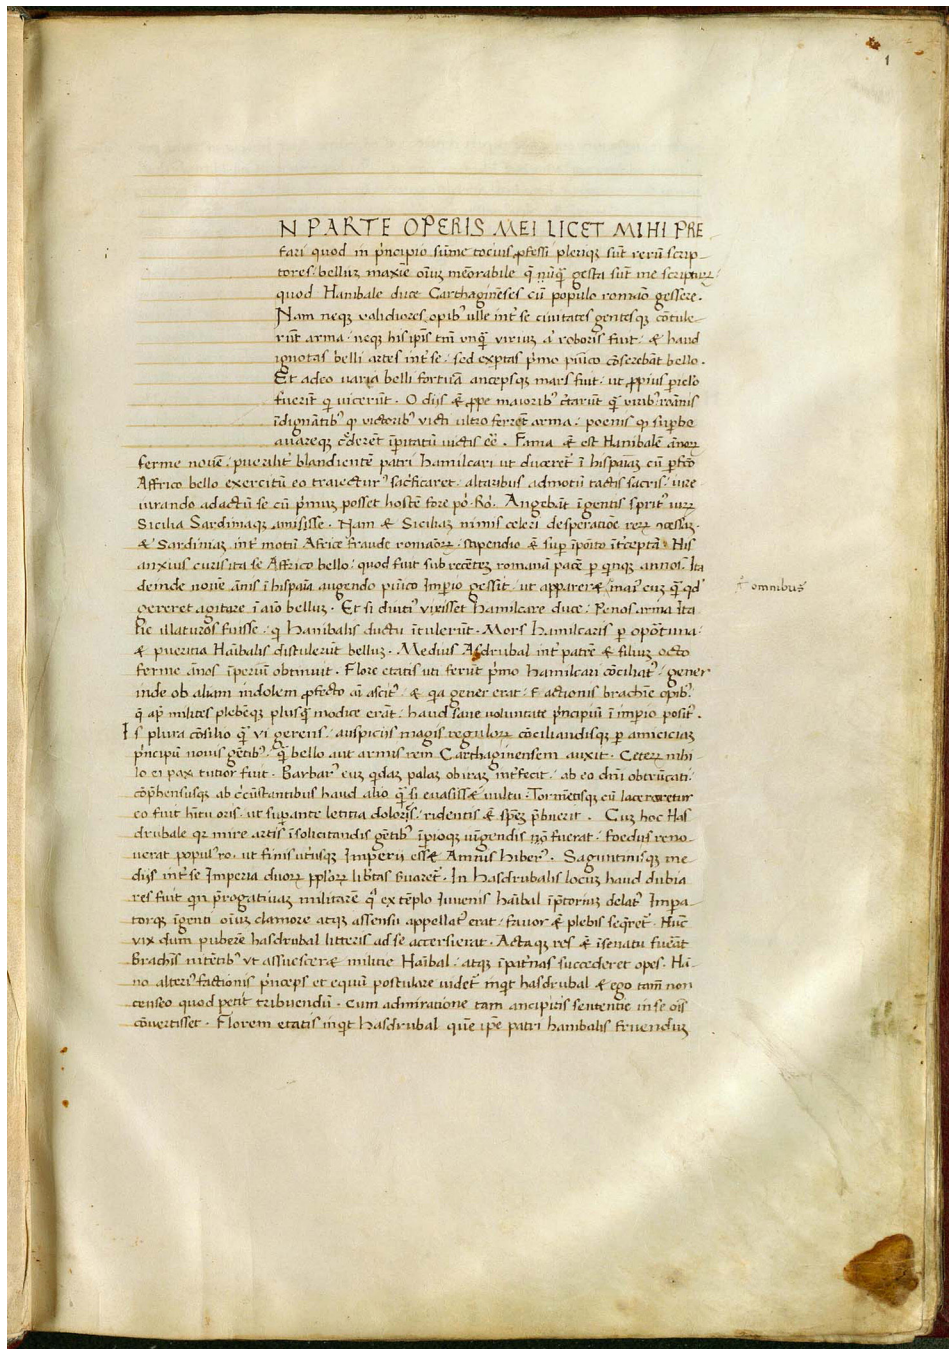 1
N PARTE OPERIS MEI LICET MIHI PRE
fari quod in p̄ncipio sūme tocius ꝓfessi pleriqꝫ sūt rerū scrip
tores: belluꝫ maxīe oīuꝫ mēorabile q̄ nūq̄ gesta sūt me scripturꝫ
quod Hanibale duce Carthaginēses cū populo romāo gessere.
Nam neqꝫ validiores opibꝰ ulle int̄ se civitates gentesqꝫ cōtule
rūt arma: neqꝫ his ip̄is tm̄ unq̄ viriuꝫ aꝉ roboris fuit: & haud
ignotas belli artes int̄ se: sed exp̄tas p̄mo pūico cōserebāt bello.
Et adeo varia belli fortūa ancepsqꝫ mars fuit: ut ꝓpius p̄iclo
fuerīt qi vicerūt. O dijs & ꝓpe maioribꝰ c̄tarūt q̄ viribꝰ romīs
īdignātibꝰ ꝙ victoribꝰ victi ultro ferrēt arma: poenis ꝙ sup̄be
avareqꝫ c̄derēt īp̄itatū victis eē. Fama & est Hanibalē ānoꝝ
ferme novē: pueriliṫ blandientē patri hamilcari ut duceret̄ ī hispaīaꝫ cū ꝑfc̄o
Affrico bello exercitū eo traiecturꝰ sac̄ficaret: altaribus admotū tactis sacris: iure
iurando adactū se cū p̄muꝫ posset hostē fore po. Ro. Angebāt īgentis sp̄ritꝰ viꝝ
Sicilia Sardiniaqꝫ amisse. Nam & Siciliaꝫ nimis celeri desperatiōe reꝝ ꝯcessaꝫ.
& Sardiniaꝫ int̄ motū Africe fraude romāoꝝ: stipendio & sup̄ īpoīto īt̄ceptā. His
anxius curis ita se Affrico bello: quod fuit sub recēteꝫ romanā pacē ꝑ qnqꝫ annos. Ita
deinde novē ānis ī hispaīa augendo pūico Imp̄io gessit: ut apparer& maiꝰ euꝫ q̄ qd̄
gereret agitare ī aīo belluꝫ. Et si diutiꝰ vixisset hamilcare duce: Penos arma Ita
lie illaturos fuisse: qi Hanibalis ductu ītulerūt. Mors hamilcaris ꝑ opōtuna:
& pueritia Hāibalis distulerūt belluꝫ. Medius Asdrubal int̄ patrē & filiuꝫ octo
ferme ānos īperiū obtinuit. Flore etatis uti ferūt p̄mo hamilcari cōciliatꝰ: gener
inde ob aliam indolem ꝓfecto aī ascitꝰ: & qa gener erat: factionis brachīe opibꝰ
q̄ ap̄ milites plebēqꝫ plusq̄ modice erāt: haud sane voluntate p̄ncipiū ī imp̄io positꝰ.
Is plura cōsilio q̄ vi gerens: auspiciis magis reguloꝝ cōciliandisqꝫ ꝑ amicicias
p̄ncipū novis gētibꝰ: q̄ bello aut armis rem Carthaginensem auxit. Ceteꝝ nihi
lo ei pax tutior fuit. Barbarꝰ euꝫ qdaꝫ palaꝫ ob iraꝫ int̄fecit: ab eo dn̄i obtrūcati:
cōp̄hensusqꝫ ab c̄cūstantibus haud alio q̄ si evasiss& vultu. Tormētisqꝫ cū laceraretur
eo fuit hītu oris: ut sup̄ante letitia dolores: ridentis & spēꝫ p̄buerit. Cuꝫ hoc Has
drubale qr mire artis ī solicitandis gētibꝰ īp̄ioqꝫ iūgendis suo fuerat: Foedus reno
verat populꝰ ro. ut finis utriusqꝫ Imperii ess& Amnis hiberꝰ. Saguntinisqꝫ me
dijs int̄ se Imperia duoꝝ pploꝝ lib̄tas s̄varet̄. In Hasdrubalis locuꝫ haud dubia
res fuit qn p̄rogativaꝫ militarē qi extēplo Iuvenis hāibal īp̄torius delatꝰ Impa
torqꝫ īgenti oīuꝫ clamore atqꝫ assensu appellatꝰ erat: favor & plebis seq̄ret̄. Hūc
vix dum puberē hasdrubal litteris ad se accersierat. Actaqꝫ res & ī senatu fuerāt
Brachīs nitētibꝰ ut assuescer& militie Hāibal: atqꝫ ī pat̄nas succederet opes. Hā
no alterꝰ factionis p̄nceps et equū postulare videt̄ inqt hasdrubal & ego tam̄ non
censeo quod petit tribuendū. Cum admiratione tam ancipitis sententie in se oīs
cōvertisset. Florem etatis inqt hasdrubal quē ip̄e patri hanibalis fruenduꝫ
omnibus